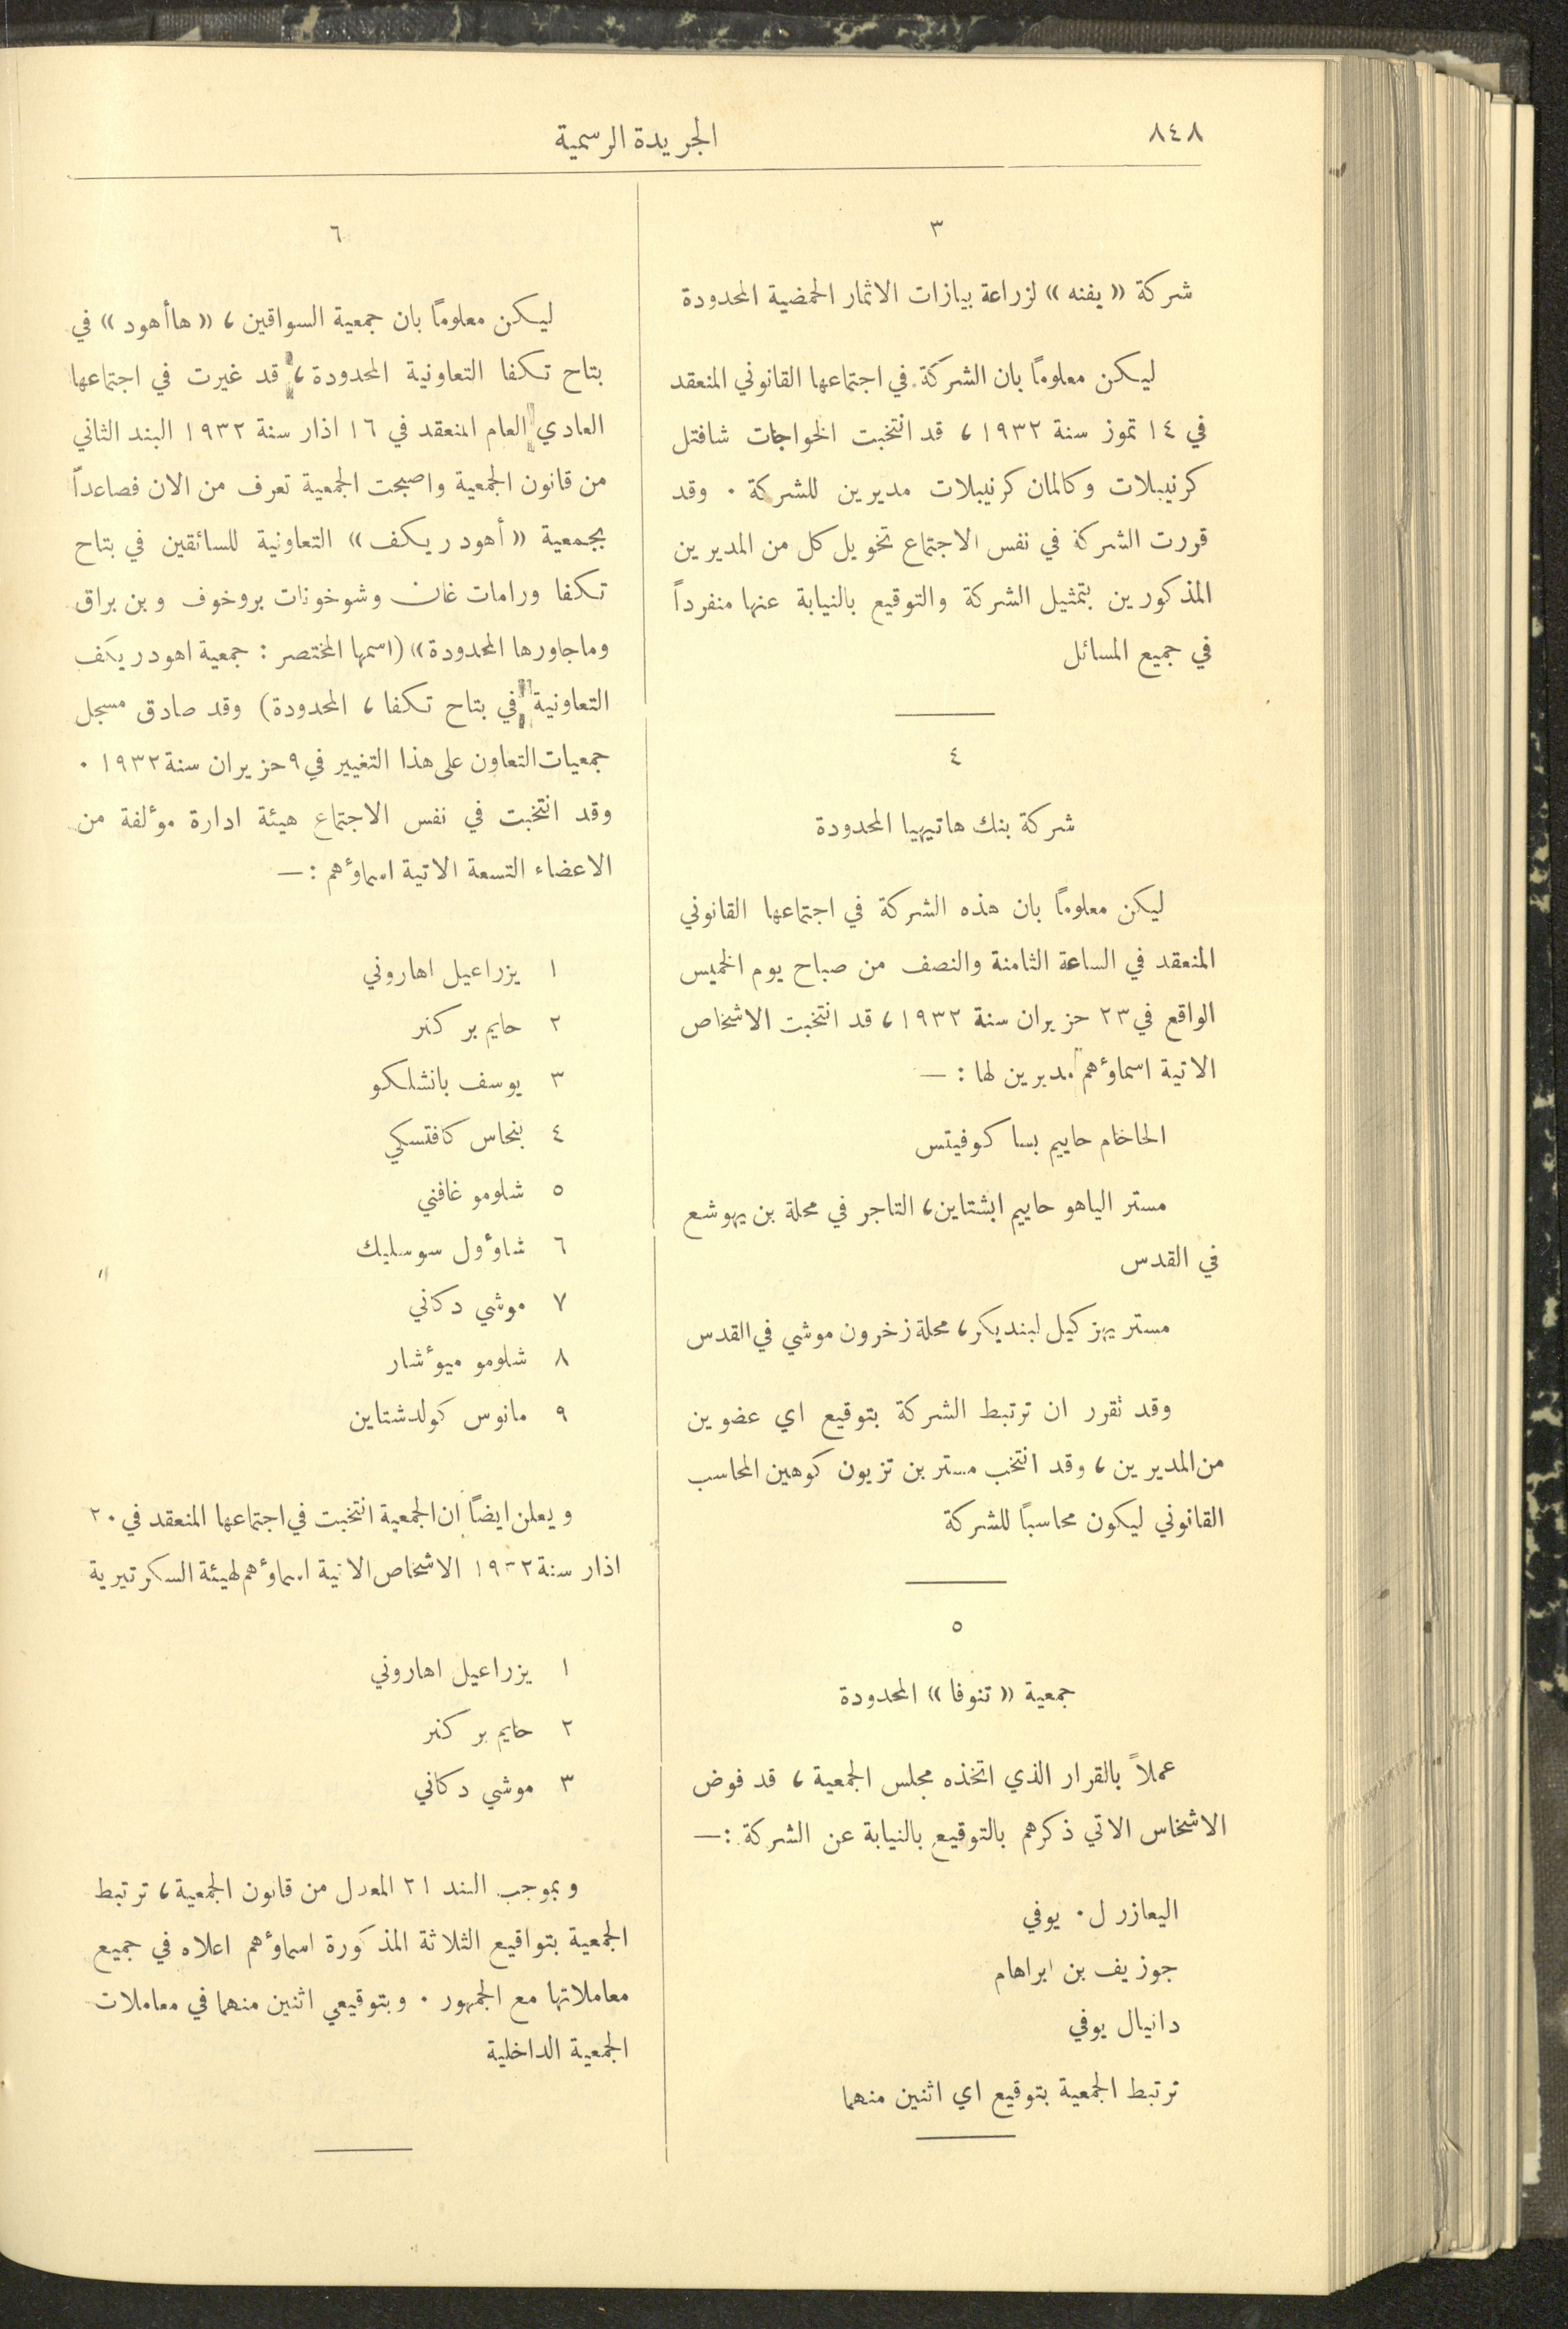 ٨٤٨
الجريدة الرسمية
٣
شركة «يفنه» لزراعة بيازات الاثمار الحمضية المحدودة
ليكن معلوماً بان الشركة في اجتماعها القانوني المنعقد
في ١٤ تموز سنة ١٩٣٢، قد انتخبت الخواجات شافتل
كرنيبلات وكالمان كرنيبلات مديرين للشركة. وقد
قررت الشركة في نفس الاجتماع تخويل كل من المديرين
المذكورين بتمثيل الشركة والتوقيع بالنيابة عنها منفرداً
في جميع المسائل
٤
شركة بنك هاتيهيا المحدودة
ليكن معلوماً بان هذه الشركة في اجتماعها القانوني
المنعقد في الساعة الثامنة والنصف من صباح يوم الخميس
الواقع في ٢٣ حزيران سنة ١٩٣٢، قد انتخبت الاشخاص
الاتية اسماؤهم مديرين لها :—
الحاخام حاييم بسا كوفيتس
مستر الياهو حاييم ابشتاين، التاجر في محلة بن يهوشع
في القدس
مستر يهزكيل لبنديكر، محلة زخرون موشي في القدس
وقد تقرر ان ترتبط الشركة بتوقيع اي عضوين
من المديرين، وقد انتخب مستر بن تزيون كوهين المحاسب
القانوني ليكون محاسباً للشركة
٥
جمعية «تنوفا» المحدودة
عملاً بالقرار الذي اتخذه مجلس الجمعية، قد فوض
الاشخاس الاتي ذكرهم بالتوقيع بالنيابة عن الشركة :—
اليعازر ل. يوفي
جوزيف بن ابراهام
دانيال يوفي
ترتبط الجمعية بتوقيع اي اثنين منهما
٦
ليكن معلوماً بان جمعية السواقين، «هاأهود» في
بتاح تكفا التعاونية المحدودة، قد غيرت في اجتماعها
العادي العام المنعقد في ١٦ اذار سنة ١٩٣٢ البند الثاني
من قانون الجمعية واصبحت الجمعية تعرف من الان فصاعداً
بجمعية «أهود ريكف» التعاونية للسائقين في بتاح
تكفا ورامات غان وشوخونات بروخوف وبن براق
وماجاورها المحدودة» (اسمها المختصر : جمعية اهود ريكف
التعاونية في بتاح تكفا، المحدودة) وقد صادق مسجل
جمعيات التعاون على هذا التغيير في ٩ حزيران سنة ١٩٣٢.
وقد انتخبت في نفس الاجتماع هيئة ادارة مؤلفة من
الاعضاء التسعة الاتية اسماؤهم :—
١ يزراعيل اهاروني
٢ حايم بر كنر
٣ يوسف بانشلكو
٤ بنحاس كافتسكي
٥ شلومو غافني
٦ شاؤول سوسليك
٧ موشي دكاني
٨ شلومو ميؤشار
٩ مانوس كولدشتاين
ويعلن ايضاً ان الجمعية انتخبت في اجتماعها المنعقد في ٢٠
اذار سنة ١٩٣٢ الاشخاص الاتية اسماؤهم لهيئة السكرتيرية
١ يزراعيل اهاروني
٢ حايم بر كنر
٣ موشي دكاني
وبموجب البند ٢١ المعدل من قانون الجمعية، ترتبط
الجمعية بتواقيع الثلاثة المذكورة اسماؤهم اعلاه في جميع
معاملاتها مع الجمهور. وبتوقيعي اثنين منهما في معاملات
الجمعية الداخلية